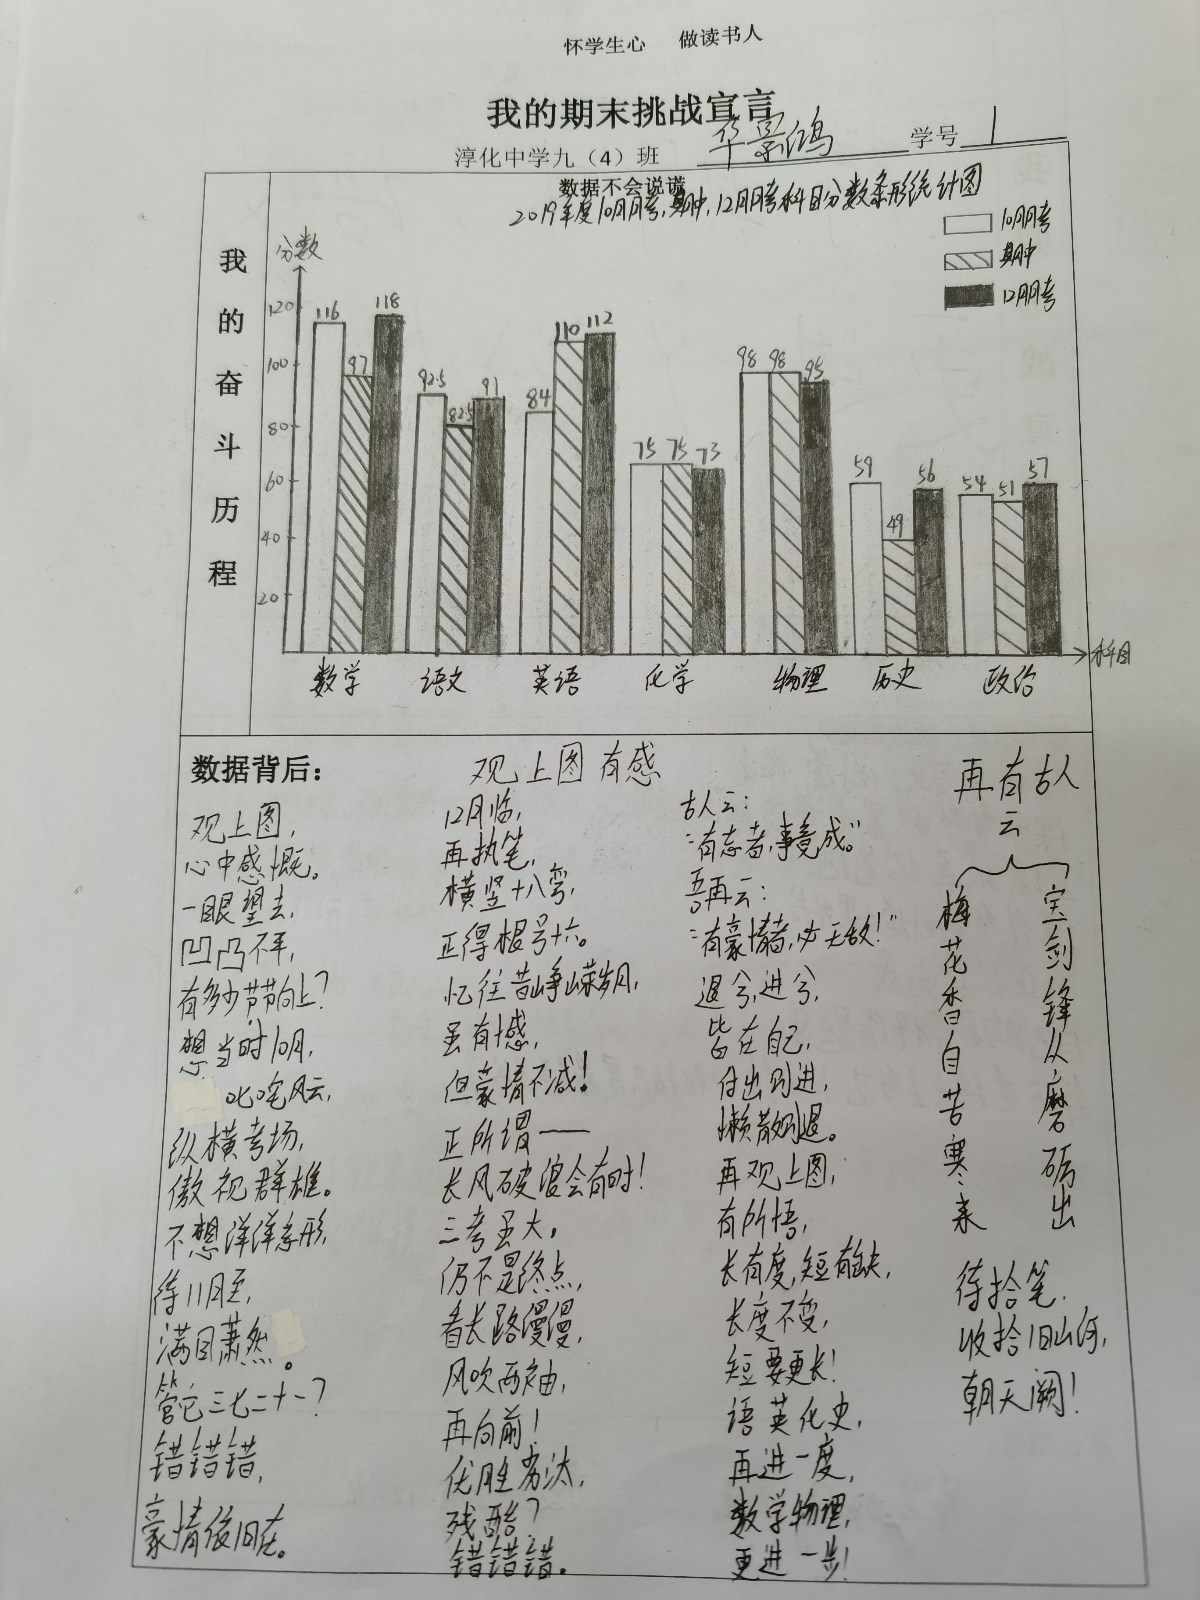 怀学生心 做读书人
我的期末挑战宣言
淳化中学九（4）班 华景鸿 学号 1
数据不会说谎
2019年度10月月考,期中,12月月考科目分数条形统计图
10月月考
期中
12月月考
我的奋斗历程
分数
120
100
80
60
40
20
116 97 118
92.5 82.5 91
84 110 112
75 75 73
98 98 95
59 49 56
54 51 57
数学 语文 英语 化学 物理 历史 政治
科目
数据背后：
观上图有感
观上图，
心中感慨。
一眼望去，
凹凸不平，
有多少节节向上？
想当时10月，
叱咤风云，
纵横考场，
傲视群雄。
不想洋洋条形，
待11月至，
满目萧然。
管它三七二十一？
错错错，
豪情依旧在。
12月临，
再执笔，
横竖十八弯，
正得根号十六。
忆往昔峥嵘岁月，
虽有憾，
但豪情不减！
正所谓——
长风破浪会有时！
三考虽大，
仍不是终点，
看长路漫漫，
风吹两袖，
再向前！
优胜劣汰，
残酷？
错错错。
古人云：
“有志者，事竟成。”
吾再云：
“有豪情者，必无敌！”
退兮，进兮，
皆在自己，
付出则进，
懒散则退。
再观上图，
有所悟，
长有度，短有缺，
长度不变，
短要更长！
语英化史，
再进一度，
数学物理，
更进一步！
再有古人云
宝剑锋从磨砺出
梅花香自苦寒来
待拾笔，
收拾旧山河，
朝天阙！